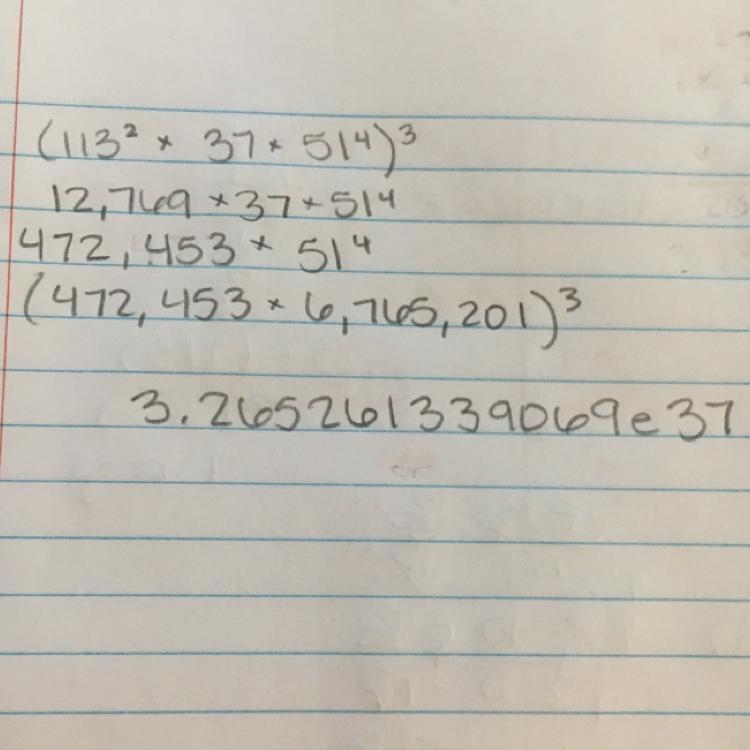 (113² * 37 * 51⁴)³
12,769 * 37 * 51⁴
472,453 * 51⁴
(472,453 * 6,765,201)³
3.265261339069e37